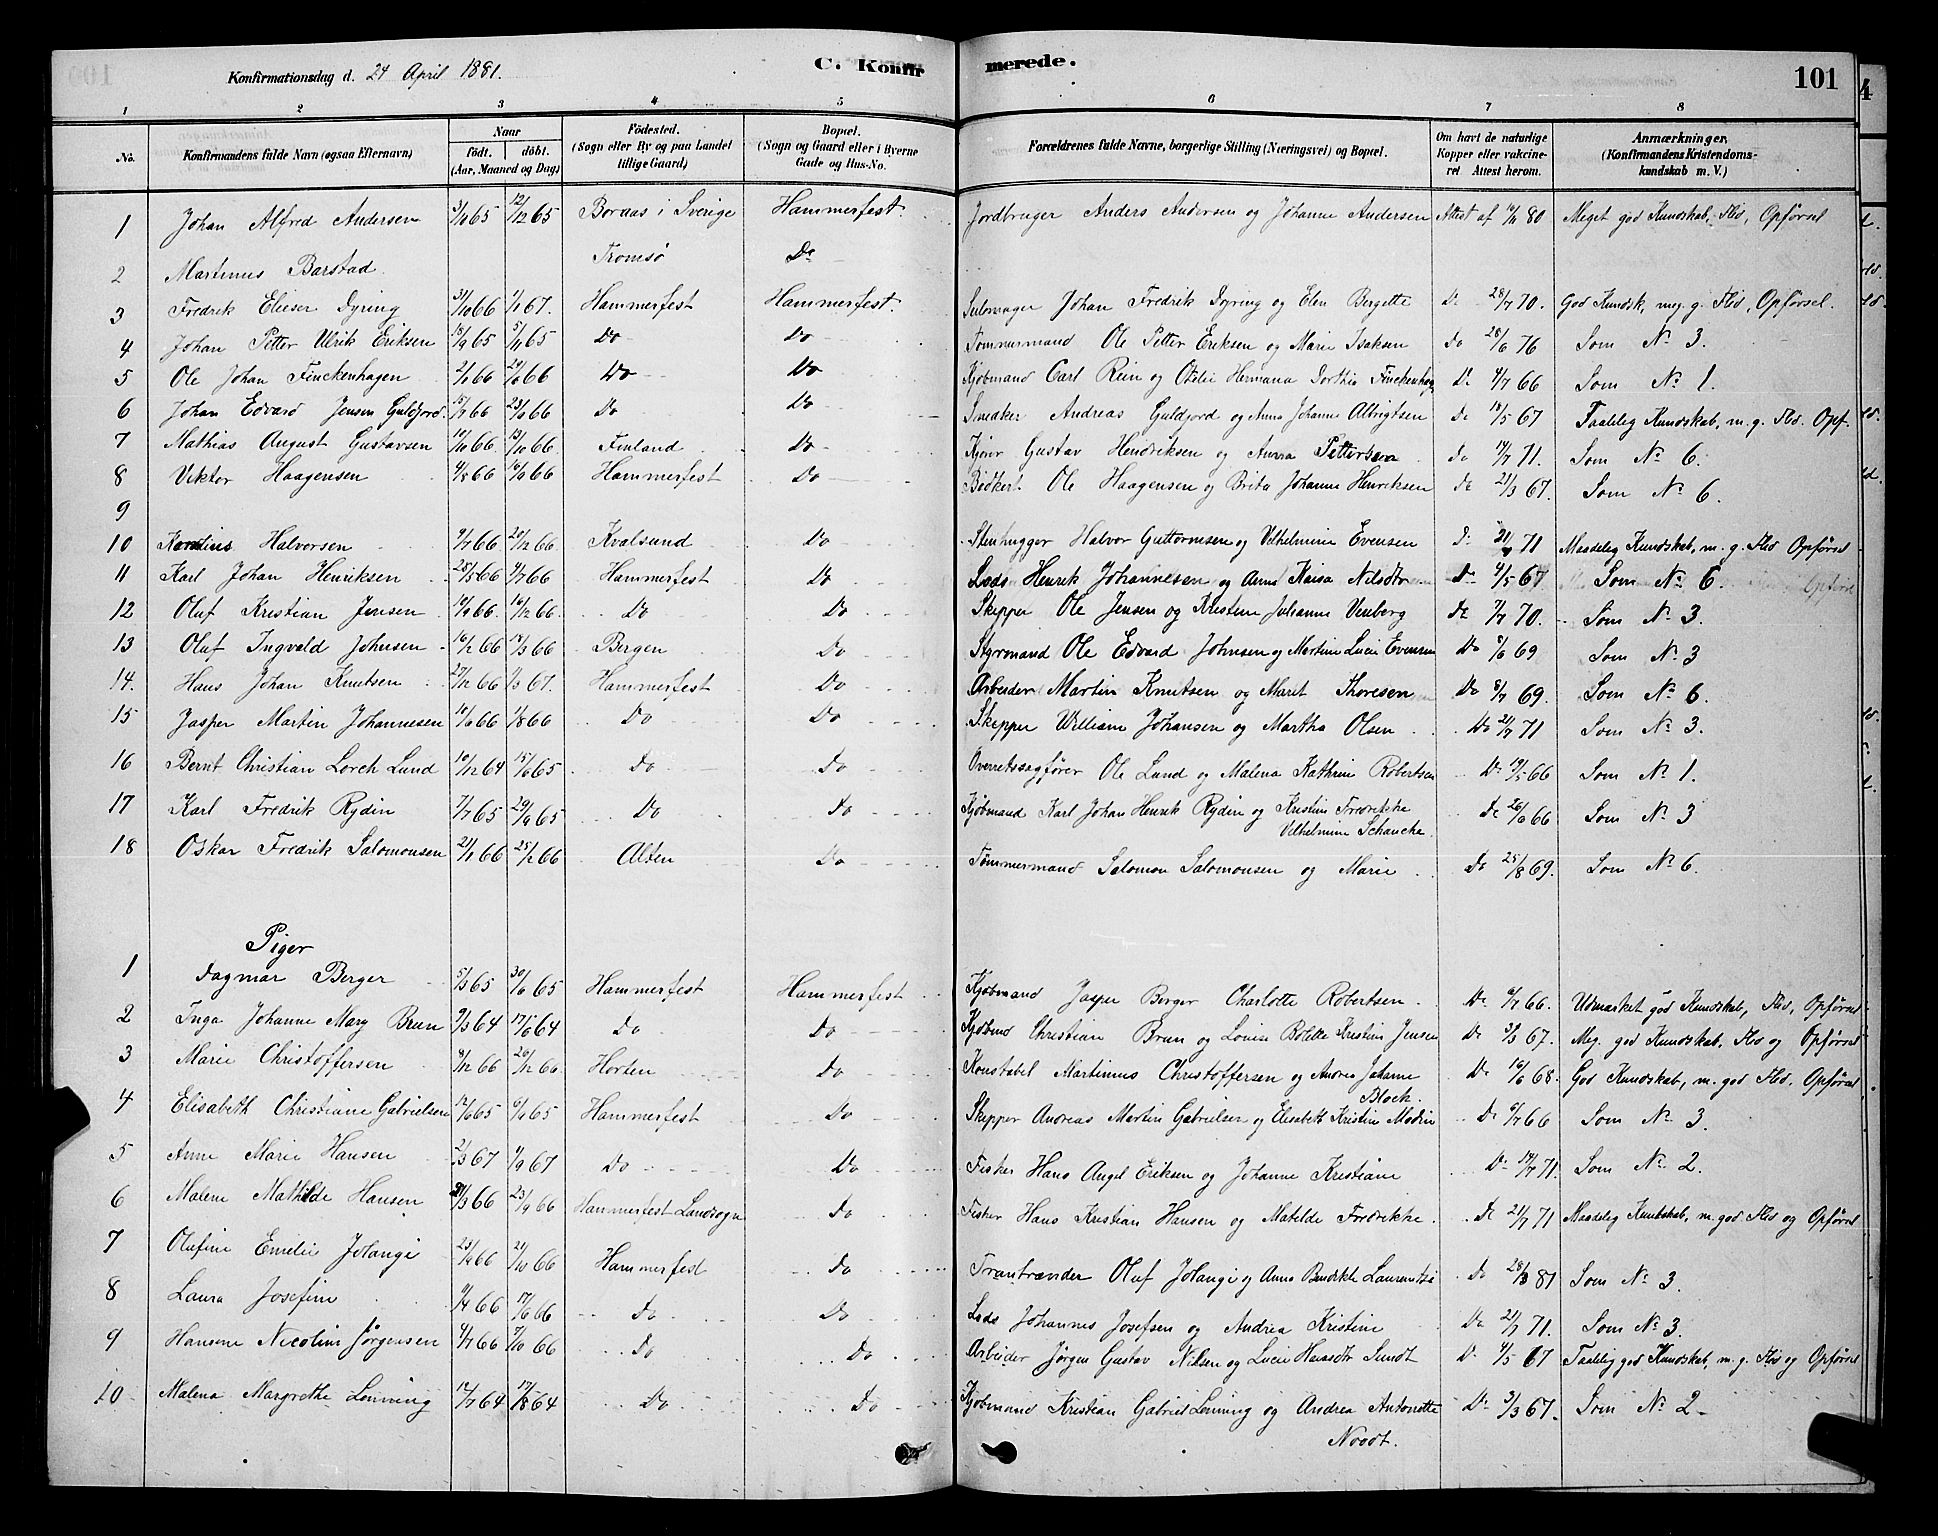 Konfirmationsdag d. 24 April 1881. C. Konfirmerede. 101
1 2 3 4 5 6 7 8
No. Konfirmandens fulde Navn (ogsaa Efternavn) Naar födt. döbt. (Aar, Maaned og Dag) Födested. (Sogn eller By og paa Landet tillige Gaard) Bopæl. (Sogn og Gaard eller i Byerne Gade og Hus-No. Forældrenes fulde Navne, borgerlige Stilling (Næringsvei) og Bopæl. Om havt de naturlige Kopper eller vakcineret Attest herom. Anmærkninger, (Konfirmandens Kristendomskundskab m. V.)
1 Johan Alfred Andersen 65 12/12 65 Boraas i Sverige Hammerfest. Jordbruger Anders Andersen og Johanne Andersen Attest af 80 Meget god Kundskab, Flid, Opførsel
2 Martinus Barstad Tromsø Do
3 Fredrik Elieser Dyring 31/10 66 1/1 67. Hammerfest Hammerfest. Johan Fredrik Dyring og Elen Bergette Do 28/7 70. God Kundsk, meg. g. Flid, Opførsel.
4 Johan Petter Ulrik Eriksen 15/9 65 5/11 65 Do Do Tømmermand Ole Petter Eriksen og Marie Isaksen Do 28/6 76 Som No 3.
5 Ole Johan Finckenhagen 66 66 Do Do Kjøbmand Carl Rein og Otelie Hermana Dorthia Finckenhag Do 4/7 66 Som No 1.
6 Johan Edvard Jensen Guldjord. 66 66 Do Do Snedker Andreas Guldjord og Anne Johanne Albrigtsen Do 18/5 67 Taalelig Kundskab, m. g. Flid. Opf.
7 Mathias August Gustavsen 66. 66. Finland Do Gustav Hendriksen og Anna Pettersen Do 14/7 71. Som No 6.
8 Viktor Haagensen 4/8 66 16/9 66 Hammerfest Do Bødker Ole Haagensen og Brita Johanne Henriksen Do 21/3 67. Som No 6.
9
10 Halvorsen 9/7 66. 20/12 66 Kvalsund Do Stenhugger Halvor Guttormsen og Vilhelmine Evensen Do 71 Maadelig Kundskab, m. g. Flid Opførsel
11 Karl Johan Henriksen 25/5 66 7/7 66 Hammerfest Do Lods Henrik Johannesen og Anna Kaisa Nilsdtr Do 4/5 67. Som No 6.
12 Oluf Kristian Jensen 10/9 66. 16/12 66. Do Do Skipper Ole Jensen og Kristine Julianne Venberg Do 7/7 70. Som No 3.
13 Oluf Ingvald Johnsen 16/2 66 18/3 66 Bergen Do Styrmand Ole Edvard Johnsen og Martine Lucie Evensen Do 8/6 69 Som No 3
14. Hans Johan Knutsen 27/12 66 1/3 67. Hammerfest Do Arbeider Martin Knutsen og Maret Thoresen Do 8/7 69. Som No 6.
15 Jasper Martin Johannesen 66 1/8 66 Do Do Skipper William Johansen og Martha Olsen Do 21/7 71 Som No 3.
16 Bernt Christian Lorch Lund 10/12 64 15/6 65 Do Do Overretssagfører Ole Lund og Malena Kathrine Robertsen Do 19/5 66 Som No 1.
17 Karl Fredrik Rydin 7/7 65 29/9 65 Do Do Kjøbmand Karl Johan Henrik Rydin og Kristine Fredrikke Vilhelmine Schancke. Do 26/6 66 Som No 3
18 Oskar Fredrik Salomonsen 21/1 66 25/2 66 Alten Do Tømmermand Salomon Salomonsen og Marie Do 25/8 69. Som No 6.
Piger
1 Dagmar Berger 5/3 65 30/6 65 Hammerfest Hammerfest Kjøbmand Jasper Berger Charlotte Robertsen. Do 6/7 66. Udmærket god Kundskab, Flid, Opførsel
2 Inga Johanne Mary Brun 9/3 64 17/6 64 Do Do Kjøbmd Christian Brun og Louise Bolette Kristine Jensen Do 3/3 67. Meg. god Kundskab, Flid og Opførsel
3 Marie Christoffersen 8/12 66 26/12 66 Horten Do Konstabel Martinius Christoffersen og Andrea Johanne Block. Do 16/6 68. God Kundskab, m. god Flid, Opførsel
4 Elisabeth Christiane Gabrielsen 17/6 65 65 Hammerfest Do Skipper Andreas Martin Gabrielsen og Elisabeth Kristine Do 6/7 66 Som No 3.
5 Anne Marie Hansen 2/3 67 1/9 67 Do Do Fisker Hans Angel Eriksen og Johanne Kristiane Do 14/7 71. Som No 2.
6 Malene Mathilde Hansen 66 23/9 66 Hammerfest Landsogn Do Fisker Hans Kristian Hansen og Matilde Fredrikke Do 21/7 71 Maadelig Kundskab, m. god Flid og Opførsel
7 Olafine Emelie Jolangi 23/9 66 21/10 66 Hammerfest Do Trantrander Oluf Jolangi og Anne Bendikte Do 28/3 81 Som No 3.
8 Laura Josefine 1/4 66 17/6 66 Do Do Lods Johannes Josefsen og Andrea Kristine Do 21/7 71. Som No 3.
9 Hansine Nicoline Jørgensen 4/7 66 7/10 66 Do Do Arbeider Jørgen Gustav Nilsen og Lucie Hansdtr Sundt Do 4/5 67 Taalelig god Kundskab, m. g. Flid og Opførsel
10 Malena Margrethe Lenning 17/7 64 17/8 64 Do Do Kjøbmand Kristian Gabriel Lenning og Andrea Antonette Noodt. Do 3/3 67. Som No 2